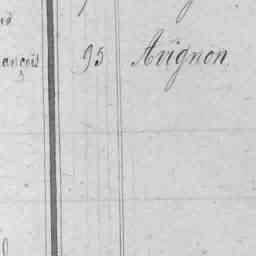 ançois 95 Avignon